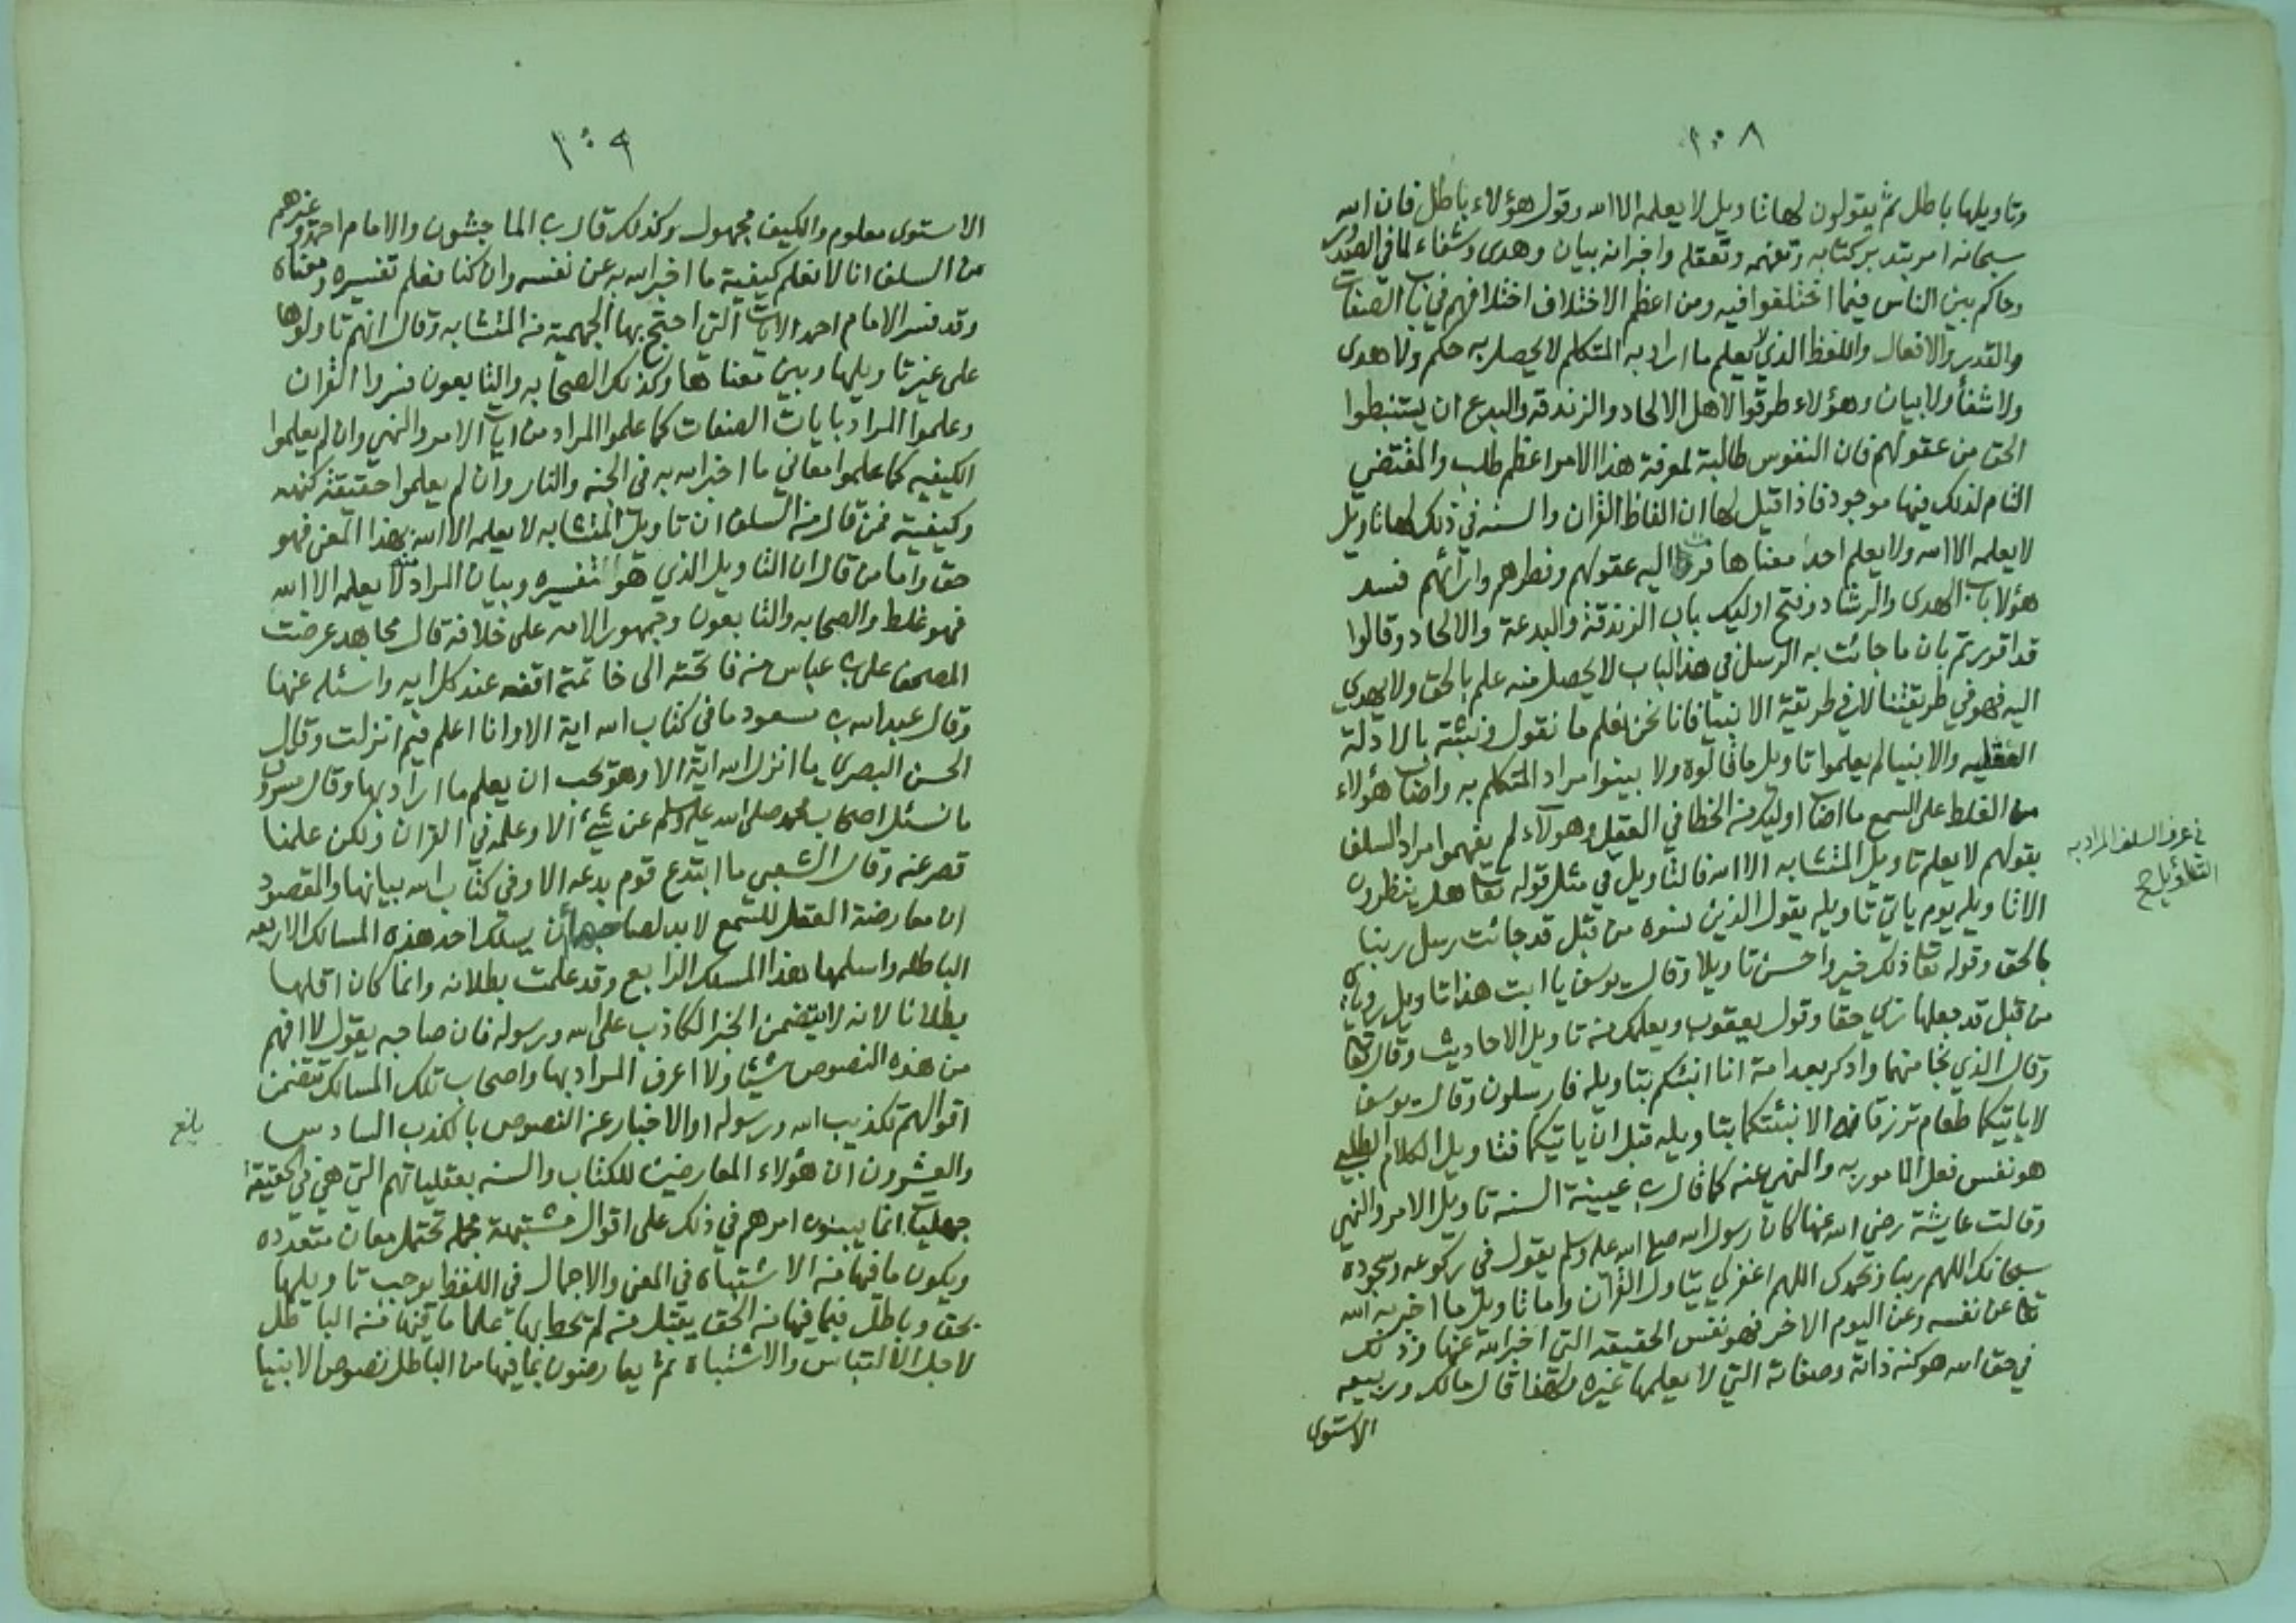 ٢٠٨
وتاويلها باطل ثم يقولون لها تاويل لا يعلمه الا الله وقول هؤلاء باطل فان الله
سبحانه امر بتدبر كتابه وتفهمه وتعقله واخبر انه بيان وهدى وشفاء لما في الصدور
وحاكم بين الناس فيما اختلفوا فيه ومن اعظم الاختلاف اختلافهم في باب الصفات
والقدر والافعال واللفظ الذي لا يعلم ما اراد به المتكلم لا يحصل به حكم ولا هدى
ولا شفأ ولا بيان وهؤلاء طرقوا لاهل الالحاد والزندقه والبدع ان يستنبطوا
الحق من عقولهم فان النفوس طالبة لمعرفة هذا الامر اعظم طلب والمقتضي
التام لذلك فيها موجود فاذا قيل لها ان الفاظ القران والسنه في ذلك لها تاويل
لا يعلمه الا الله ولا يعلم احد معناها اليه عقولهم وفطرهم وارائهم فسد
هؤلا باب الهدى والرشاد وفتح اوليك باب الزندقة والبدعة والالحاد وقالوا
قد اقررتم بان ما جائت به الرسل في هذا الباب لا يحصل منه علم بالحق ولا يهدي
اليه فهو في طريقتنا لا في طريقة الانبيا فانا نحن نعلم ما نقول ونثبته بالادلة
العقليه والانبيا لم يعلموا تاويل ما قالوه ولا بينوا مراد المتكلم به واصاب هؤلاء
من الغلط على السمع ما اصاب اوليك من الخطا في العقل وهولاء لم يفهموا مراد السلف
بقولهم لا يعلم تاويل المتشابه الا الله فالتاويل في مثل قوله تعا هل ينظرون
في عرف السلف المراد به
التأويل صح
الا تاويله يوم ياتي تاويله يقول الذين نسوه من قبل قد جائت رسل ربنا
بالحق وقوله تعا ذلك خير واحسن تاويلا وقال يوسف يا ابت هذا تاويل روياي
من قبل قد جعلها ربي حقا وقول يعقوب ويعلمك من تاويل الاحاديث وقال تعا
وقال الذي نجا منهما وادكر بعد امة انا انبئكم بتاويله فارسلون وقال يوسف
لا ياتيكما طعام ترزقانه الا نبئتكما بتاويله قبل ان ياتيكما فتاويل الكلام الطلبي
هو نفس فعل المامور به والنهي عنه كما قال بن عيينة السنه تاويل الامر والنهي
وقالت عايشة رضي الله عنها كان رسول الله صلى الله عليه وسلم يقول في ركوعه وسجوده
سبحانك اللهم ربنا وبحمدك اللهم اغفر لي يتاول القرآن واما تاويل ما اخبر به الله
تعا عن نفسه وعن اليوم الاخر فهو نفس الحقيقه التي اخبر الله عنها وذلك
في حق الله هو كنه ذاته وصفاته التي لا يعلمها غيره ولهذا قال مالك وربيعه
الاستوى
٢٠٩
الاستوى معلوم والكيف مجهول وكذلك قال بن الماجشون والامام احمد وغيرهم
من السلف انا لا نعلم كيفية ما اخبر الله به عن نفسه وان كنا نعلم تفسيره ومعناه
وقد فسر الامام احمد الايات التي احتج بها الجهمية من المتشابه وقال انهم تاولوها
على غير تاويلها وبين معناها وكذلك الصحابه والتابعون فسروا القران
وعلموا المراد بايات الصفات كما علموا المراد من ايات الامر والنهي وان لم يعلموا
الكيفيه كما علموا معاني ما اخبر الله به في الجنه والنار وان لم يعلموا حقيقة كنهه
وكيفيته فمن قال من السلف ان تاويل المتشابه لا يعلمه الا الله بهذا المعنى فهو
حق واما من قال ان التاويل الذي هو تفسيره وبيان المراد منه لا يعلمه الا الله
فهو غلط والصحابه والتابعون وجمهور الامه على خلافه قال مجاهد عرضت
المصحف على بن عباس من فاتحته الى خاتمته اقفه عند كل ايه واسئله عنها
وقال عبد الله بن مسعود ما في كتاب الله اية الا وانا اعلم فيم انزلت وقال
الحسن البصري ما انزل الله اية الا وهو يحب ان يعلم ما اراد بها وقال مسروق
ما نسئل اصحاب محمد صلى الله عليه وسلم عن شئ الا وعلمه في القران ولكن علمنا
قصر عنه وقال الشعبي ما ابتدع قوم بدعه الا وفي كتاب الله بيانها والمقصود
ان معارضة العقل للسمع لا بد لصاحبها أن يسلك احد هذه المسالك الاربعه
الباطله واسلمها هذا المسلك الرابع وقد علمت بطلانه وانما كان اقلها
بطلانا لانه لا يتضمن الخبر الكاذب على الله ورسوله فان صاحبه يقول لا افهم
من هذه النصوص شيئا ولا اعرف المراد بها واصحاب تلك المسالك تتضمن
اقوالهم تكذيب الله ورسوله او الاخبار عن النصوص بالكذب السادس
بلغ
والعشرون ان هؤلاء المعارضين للكتاب والسنه بعقلياتهم التي هي في الحقيقة
جهليات انما يبنون امرهم في ذلك على اقوال مشتبهة مجمله تحتمل معان متعدده
ويكون ما فيها من الاشتباه في المعنى والاجمال في اللفظ يوجب تاويلها
بحق وباطل فبما فيها من الحق يقبل من لم يحط بها علما ما فيها من الباطل
لاجل الالتباس والاشتباه ثم يعارضون بما فيها من الباطل نصوص الانبيا